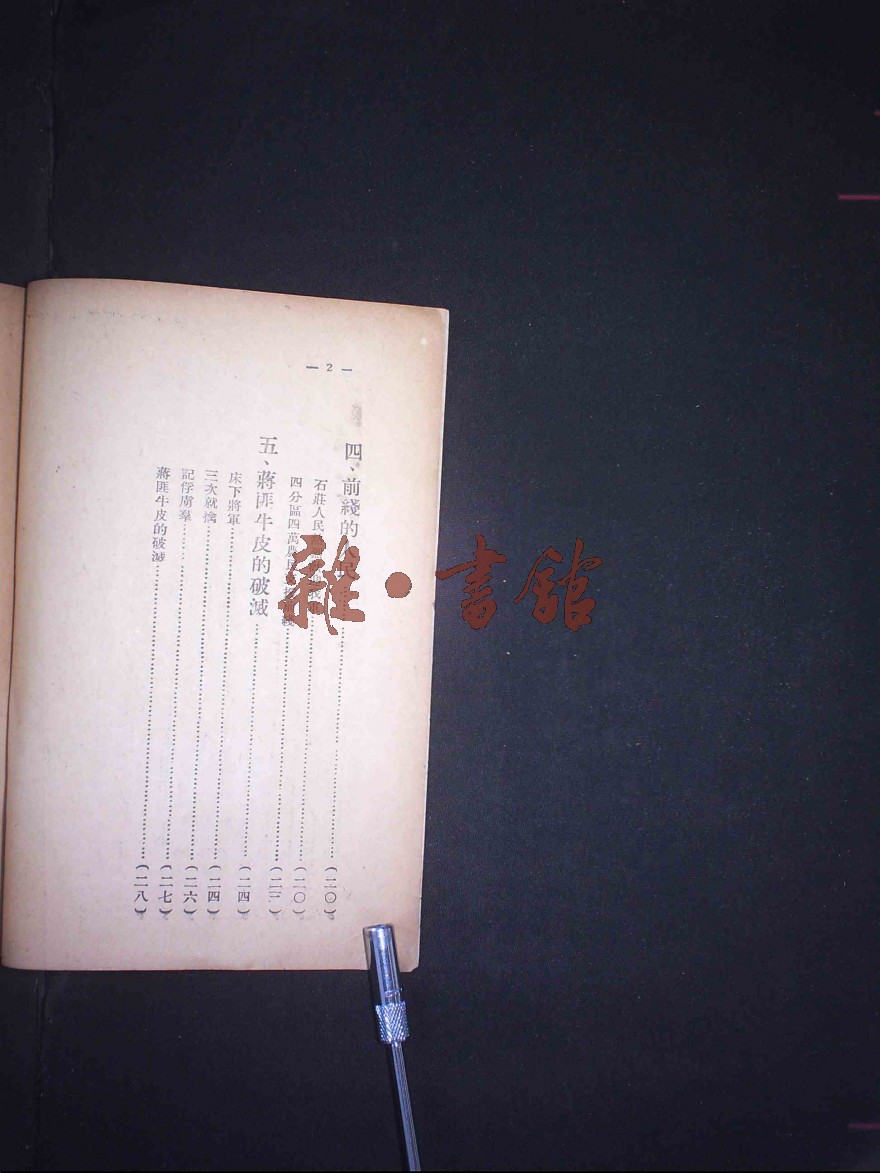 — 2 —
四、前綫的……(二〇)
石莊人民……(二〇)
四分區四萬農民……(二二)
五、蔣匪牛皮的破滅……(二四)
床下將軍……(二四)
三次就擒……(二六)
記俘虜羣……(二七)
蔣匪牛皮的破滅……(二八)
雜·書館